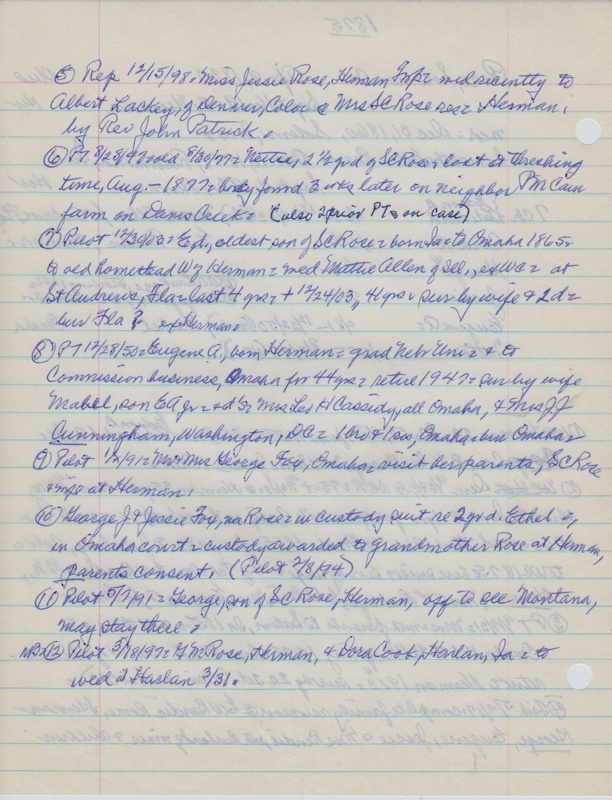 1875
⑤ Rep 12/15/98 = Miss Jessie Rose, Herman Twp = wed recently to
Albert Lackey, of Denver, Colo @ Mrs SC Rose res = Herman,
by Rev John Patrick.
⑥ PT 8/28/47 = old 8/30/77 = Nettie, 2½ yr d of SC Rose = lost at threshing
time, Aug - 1877 = body found 3 wks later on neighbor PM Cain
farm on Davis Creek = (also 2 prior PTs on case)
⑦ Pilot 12/30/03 = Ed, oldest son of SC Rose = born Ia = to Omaha 1865 =
to old homestead W of Herman = wed Mattie Allen of Ill., ex WC = at
St Andrews, Fla = last 4 yrs = + 12/24/03, 41 yrs = sur by wife & 2d =
bur Fla ? ex Herman =
⑧ PT 12/28/50 = Eugene A., born Herman = grad Nebr Uni = & to
Commission business, Omaha for 44 yrs = retire 1947 = sur by wife
Mabel, son EA jr = & ds Mrs Les H Cassidy, all Omaha, & Mrs JJ
Cunningham, Washington, DC = 1 bro & 1 sis, Omaha = bur Omaha =
⑨ Pilot 1/2/91 = Mr & Mrs George Fox, Omaha = visit her parents, SC Rose
& wife at Herman.
⑩ George J & Jessie Fox, nee Rose = in custody suit re 2 yr d. Ethel =,
in Omaha court = custody awarded to grandmother Rose at Herman,
parents consent. (Pilot 2/8/94)
⑪ Pilot 5/7/91 = George, son of SC Rose, Herman, off to see Montana,
may stay there =
NB ⑫ Pilot 3/18/97 = GM Rose, Herman, & Dora Cook, Harlan, Ia = to
wed at Harlan 3/31.